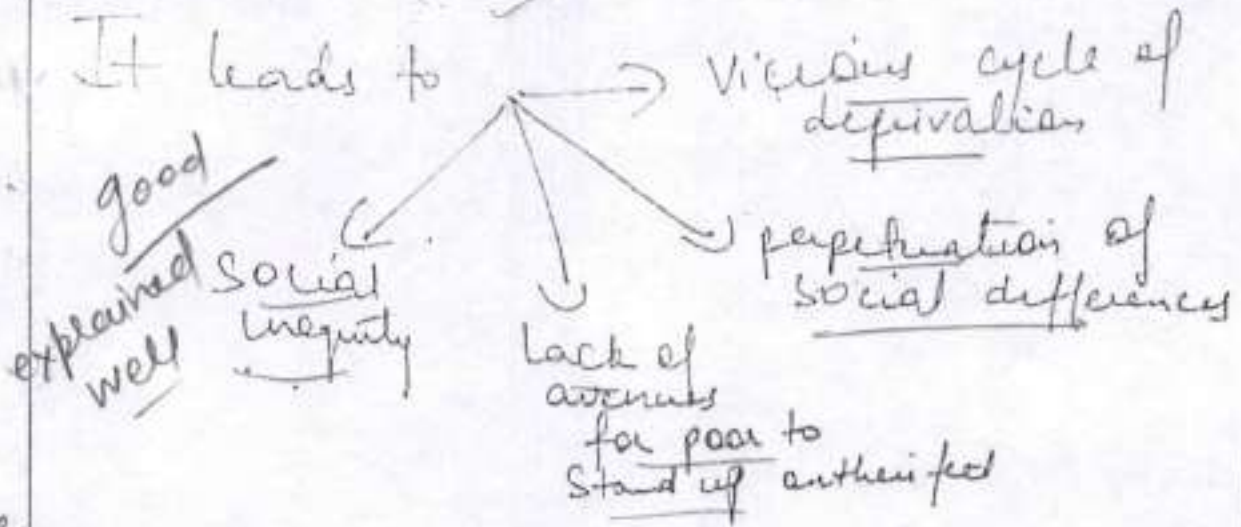 It leads to
Vicious cycle of
deprivation
good
explained
well
Social
inequity
Lack of
avenues
for poor to
Stand up on their feet
perpetuation of
social differences